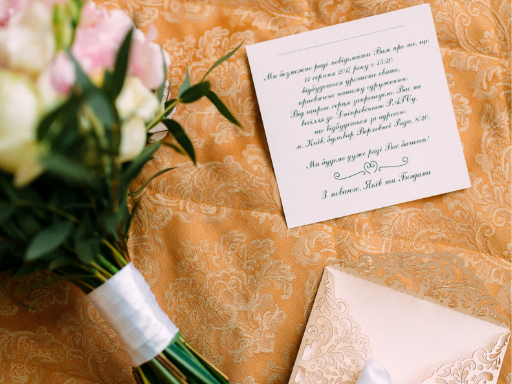 Ми безмежно раді повідомити Вам про те, що
11 серпня 2017 року о 15:20
відбудеться урочисте свято,
присвячене нашому одруженню.
Від щирого серця запрошуємо Вас на
весілля до Дніпровського РАГСу,
що відбудеться за адресою:
м. Київ, бульвар Верховної Ради, 8/20.
Ми будемо дуже раді Вас бачити!
З повагою, Яків та Богдана